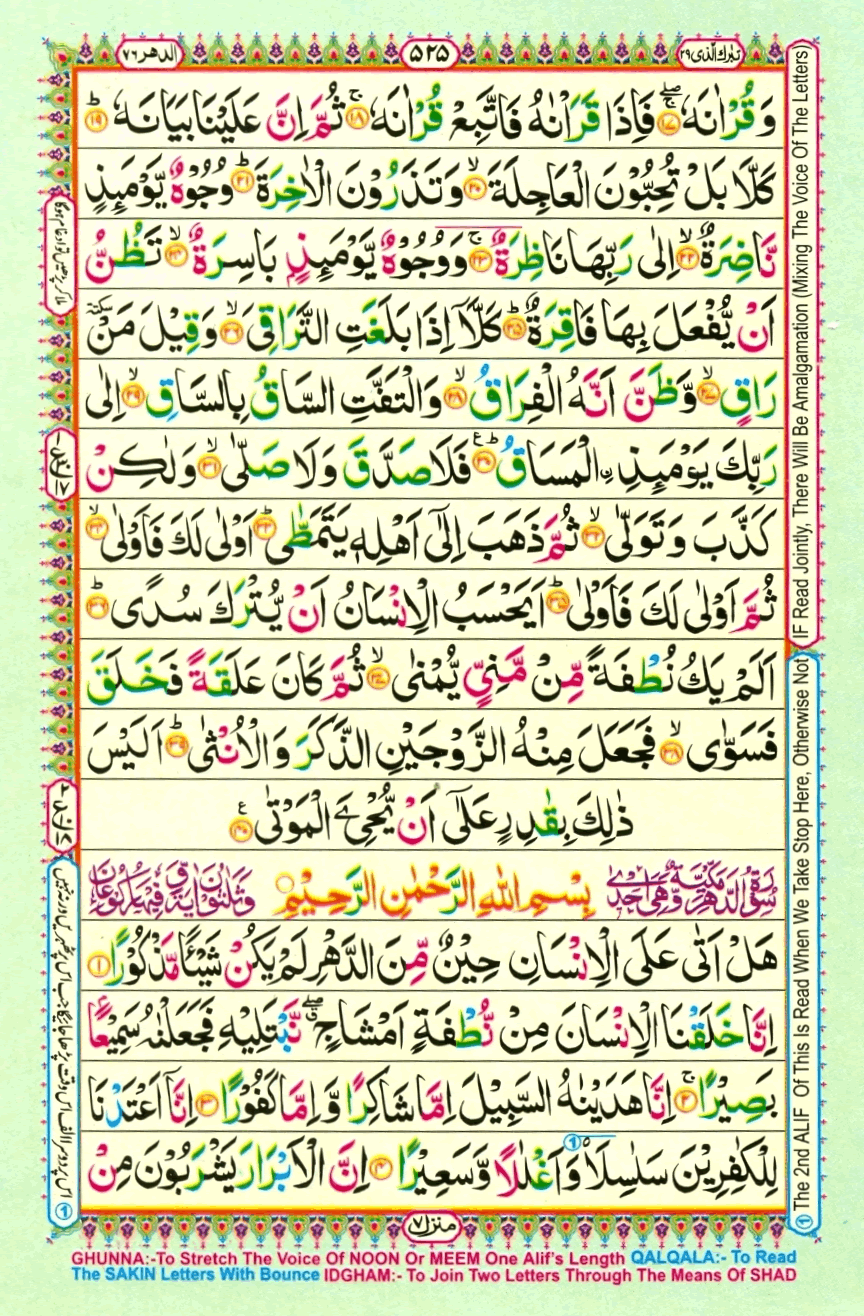 تبارك الذى ٢٩
٥٢٥
الدهر ٧٦
وَ قُرْاٰنَهٗ ۚۖ‏﴿۱۷﴾ فَاِذَا قَرَاْنٰهُ فَاتَّبِعْ قُرْاٰنَهٗ ۚ‏﴿۱۸﴾ ثُمَّ اِنَّ عَلَيْنَا بَيَانَهٗ ؕ‏﴿۱۹﴾
كَلَّا بَلْ تُحِبُّوْنَ الْعَاجِلَةَ ۙ‏﴿۲۰﴾ وَ تَذَرُوْنَ الْاٰخِرَةَ ؕ‏﴿۲۱﴾ وُجُوْهٌ يَّوْمَئِذٍ
نَّاضِرَةٌ ۙ‏﴿۲۲﴾ اِلٰى رَبِّهَا نَاظِرَةٌ ۚ‏﴿۲۳﴾ وَ وُجُوْهٌ يَّوْمَئِذٍۭ بَاسِرَةٌ ۙ‏﴿۲۴﴾ تَظُنُّ
اَنْ يُّفْعَلَ بِهَا فَاقِرَةٌ ؕ‏﴿۲۵﴾ كَلَّاۤ اِذَا بَلَغَتِ التَّرَاقِىَ ۙ‏﴿۲۶﴾ وَ قِيْلَ مَنْ سكتة
رَاقٍ ۙ‏﴿۲۷﴾ وَّ ظَنَّ اَنَّهُ الْفِرَاقُ ۙ‏﴿۲۸﴾ وَ الْتَفَّتِ السَّاقُ بِالسَّاقِ ۙ‏﴿۲۹﴾ اِلٰى
رَبِّكَ يَوْمَئِذِ ۨالْمَسَاقُ ؕ ع‏﴿۳۰﴾ فَلَا صَدَّقَ وَ لَا صَلّٰى ۙ‏﴿۳۱﴾ وَ لٰكِنْ
كَذَّبَ وَ تَوَلّٰى ۙ‏﴿۳۲﴾ ثُمَّ ذَهَبَ اِلٰٓى اَهْلِهٖ يَتَمَطّٰى ؕ‏﴿۳۳﴾ اَوْلٰى لَكَ فَاَوْلٰى ۙ‏﴿۳۴﴾
ثُمَّ اَوْلٰى لَكَ فَاَوْلٰى ؕ‏﴿۳۵﴾ اَيَحْسَبُ الْاِنْسَانُ اَنْ يُّتْرَكَ سُدًى ؕ‏﴿۳۶﴾
اَلَمْ يَكُ نُطْفَةً مِّنْ مَّنِىٍّ يُّمْنٰى ۙ‏﴿۳۷﴾ ثُمَّ كَانَ عَلَقَةً فَخَلَقَ
فَسَوّٰى ۙ‏﴿۳۸﴾ فَجَعَلَ مِنْهُ الزَّوْجَيْنِ الذَّكَرَ وَ الْاُنْثٰى ؕ‏﴿۳۹﴾ اَلَيْسَ
ذٰلِكَ بِقٰدِرٍ عَلٰٓى اَنْ يُّحْيِۦَ الْمَوْتٰى ع‏﴿۴۰﴾
سُوْرَةُ الدَّهْرِ مَكِّيَّةٌ وَّهِىَ اِحْدٰى بِسْمِ اللّٰهِ الرَّحْمٰنِ الرَّحِيْمِ وَثَلٰثُوْنَ اٰيَةً وَّفِيْهَا رُكُوْعَانِ
هَلْ اَتٰى عَلَى الْاِنْسَانِ حِيْنٌ مِّنَ الدَّهْرِ لَمْ يَكُنْ شَيْـًٔا مَّذْكُوْرًا‏﴿۱﴾
اِنَّا خَلَقْنَا الْاِنْسَانَ مِنْ نُّطْفَةٍ اَمْشَاجٍ ۖۗ نَّبْتَلِيْهِ فَجَعَلْنٰهُ سَمِيْعًۢا
بَصِيْرًا ۚ‏﴿۲﴾ اِنَّا هَدَيْنٰهُ السَّبِيْلَ اِمَّا شَاكِرًا وَّ اِمَّا كَفُوْرًا‏﴿۳﴾ اِنَّاۤ اَعْتَدْنَا
لِلْكٰفِرِيْنَ سَلٰسِلَا۟ ① وَ اَغْلٰلًا وَّ سَعِيْرًا‏﴿۴﴾ اِنَّ الْاَبْرَارَ يَشْرَبُوْنَ مِنْ
منزل ٧
IF Read Jointly, There Will Be Amalgamation (Mixing The Voice Of The Letters)
① The 2nd ALIF Of This Is Read When We Take Stop Here, Otherwise Not
ملا کر پڑھیں تو ادغام ہوگا
① اس پر دوسرا الف اس وقت پڑھا جائیگا جب اس پر ٹھہریں ورنہ نہیں
GHUNNA:-To Stretch The Voice Of NOON Or MEEM One Alif's Length QALQALA:- To Read
The SAKIN Letters With Bounce IDGHAM:- To Join Two Letters Through The Means Of SHAD